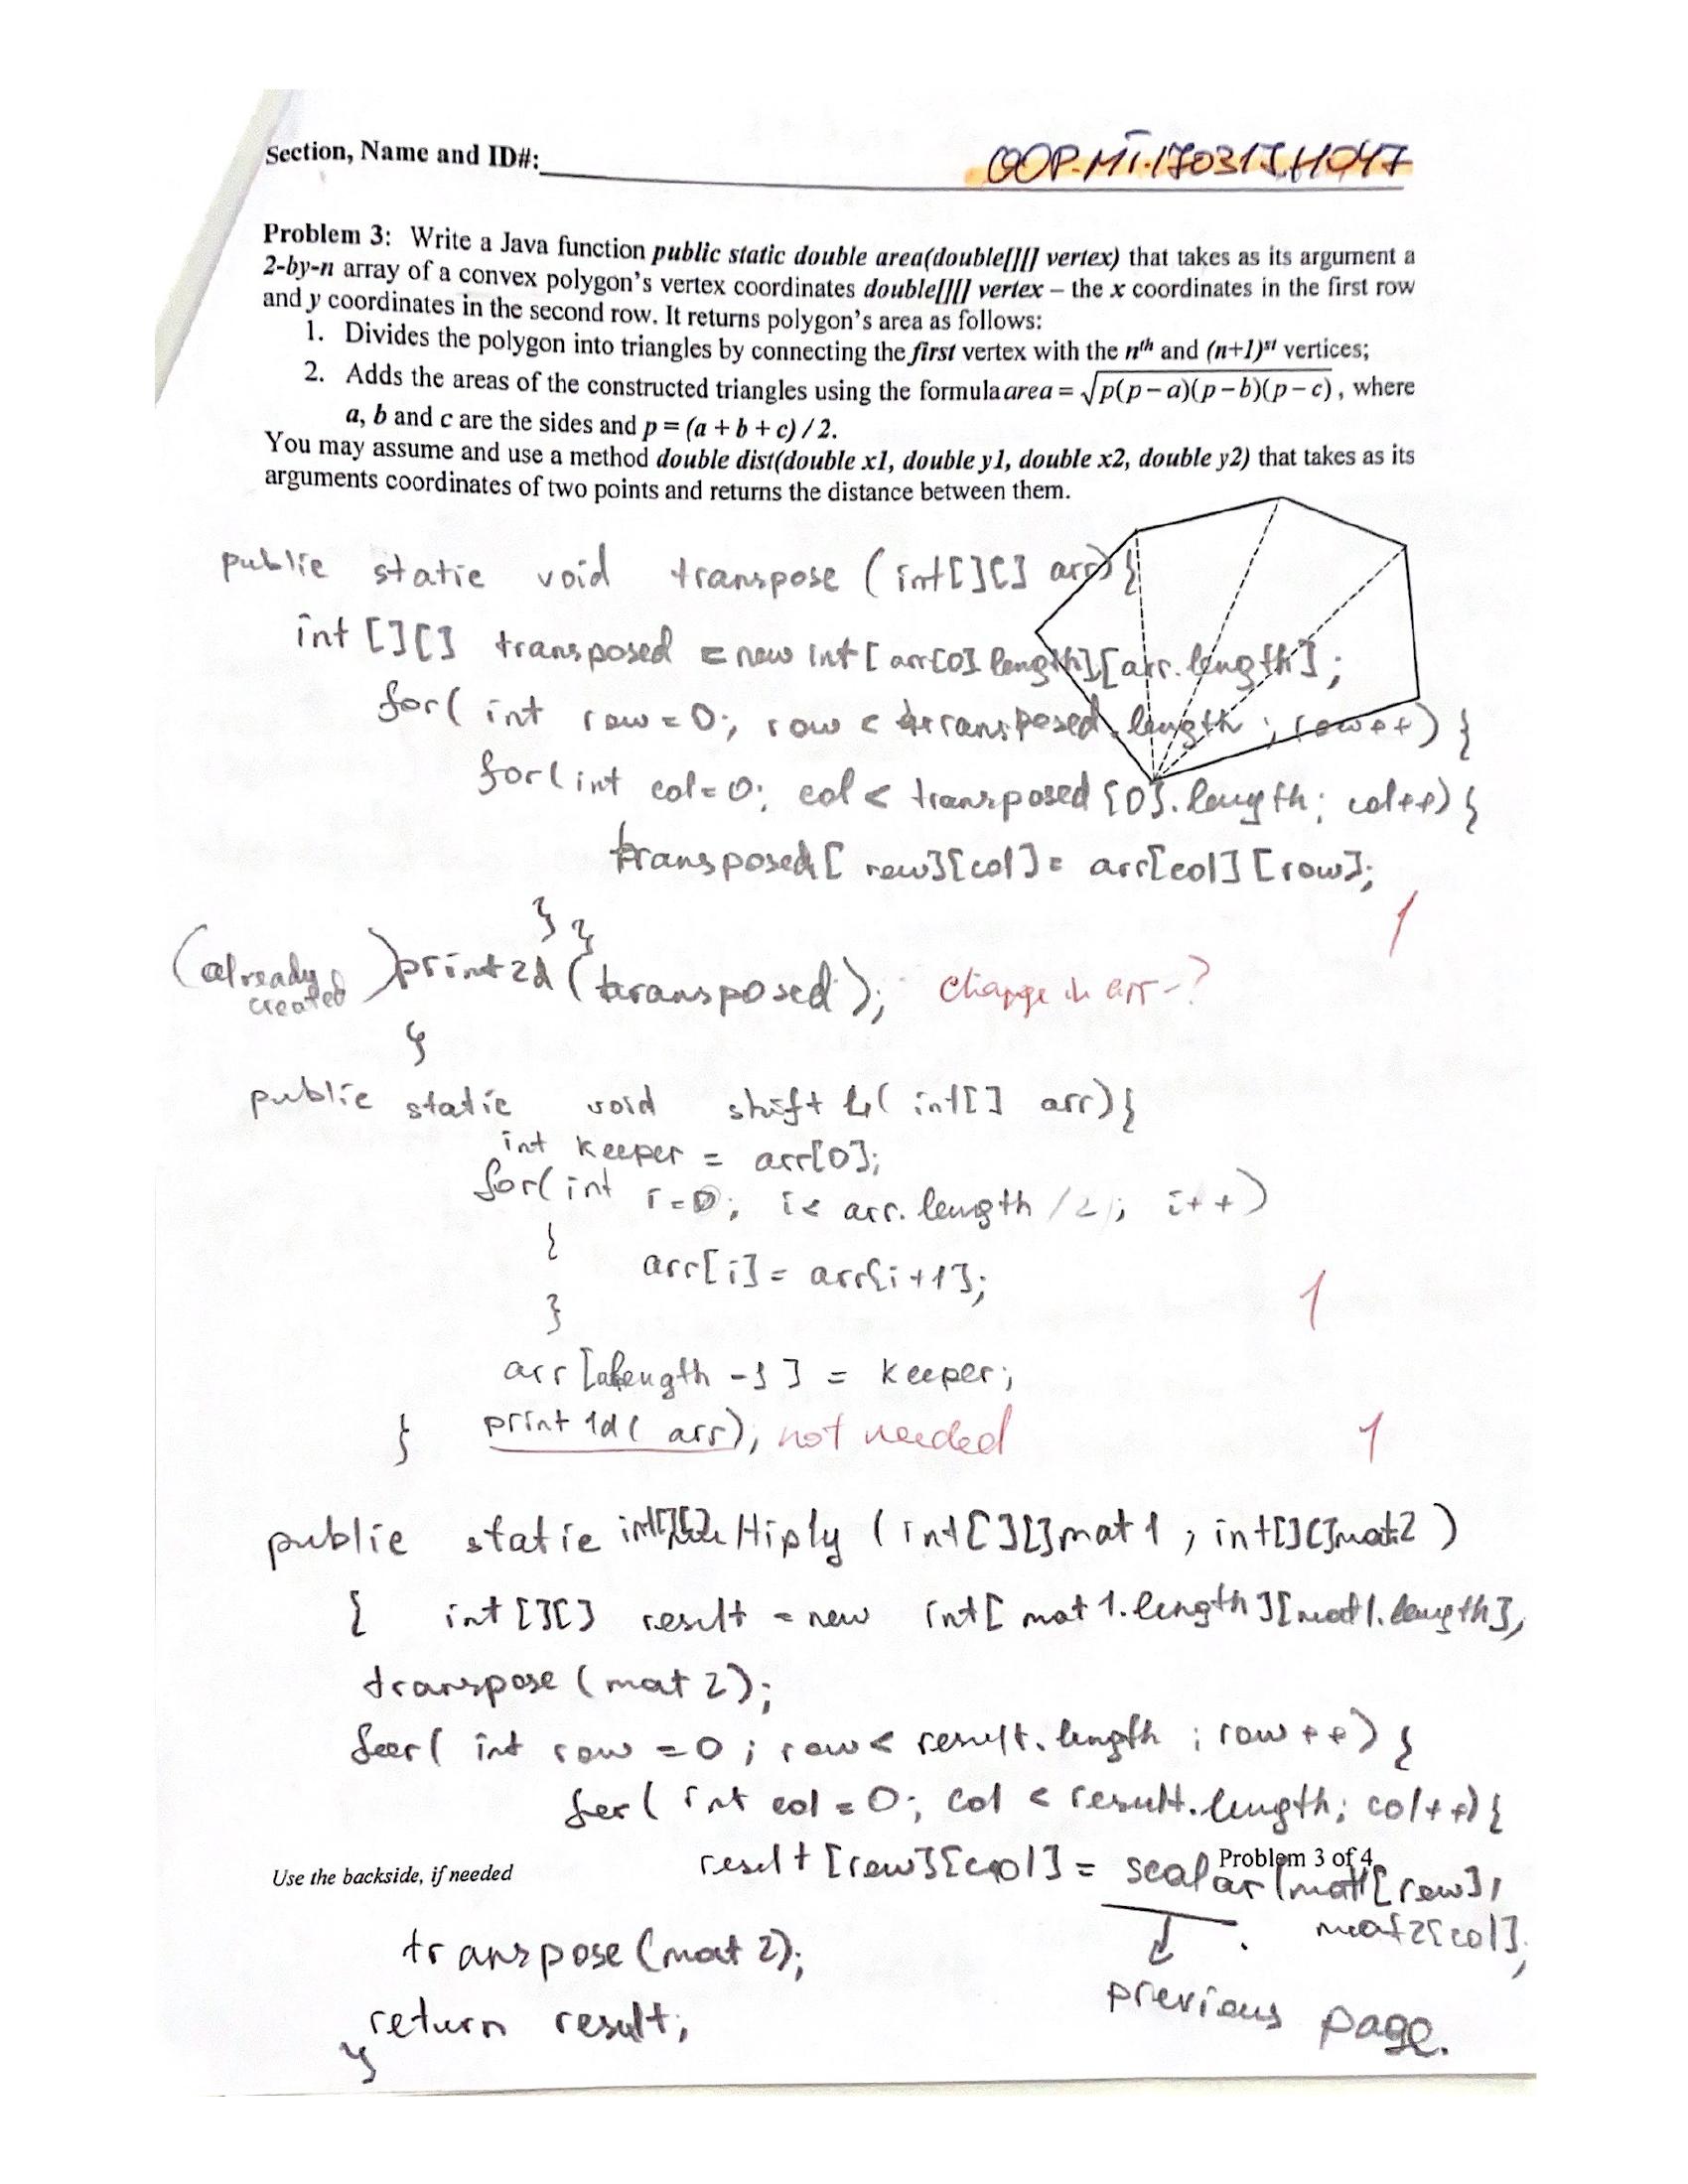 Section, Name and ID#:
OOP.MT.170315.H047
Problem 3: Write a Java function public static double area(double[][] vertex) that takes as its argument a
2-by-n array of a convex polygon's vertex coordinates double[][] vertex – the x coordinates in the first row
and y coordinates in the second row. It returns polygon's area as follows:
1. Divides the polygon into triangles by connecting the first vertex with the nth and (n+1)st vertices;
2. Adds the areas of the constructed triangles using the formula area = √p(p − a)(p − b)(p − c), where
a, b and c are the sides and p = (a + b + c) / 2.
You may assume and use a method double dist(double x1, double y1, double x2, double y2) that takes as its
arguments coordinates of two points and returns the distance between them.
public static void transpose (int[][] arr){
int [][] transposed = new int[arr[0].length][arr.length];
for( int row = 0; row < transposed.length ; row++) {
for(int col=0; col < transposed[0].length; col++) {
transposed[row][col] = arr[col][row];
1
} }
(already created) print2d (transposed); change in arr -?
}
public static void shift ( int[] arr){
int keeper = arr[0];
for( int i=0; i< arr.length /2 ; i++)
{
arr[i] = arr[i+1];
1
}
arr [length -1] = keeper;
} print1d( arr); not needed 1
public static int[][] multiply (int[][]mat1, int[][]mat2)
{ int[][] result = new int[mat1.length][mat1.length];
transpose (mat2);
for( int row = 0 ; row < result.length ; row++) {
for( int col = 0; col < result.length; col++) {
result [row][col] = scalar(mat1[row],
Problem 3 of 4
Use the backside, if needed
mat2[col];
transpose (mat2);
previous page.
return result;
}